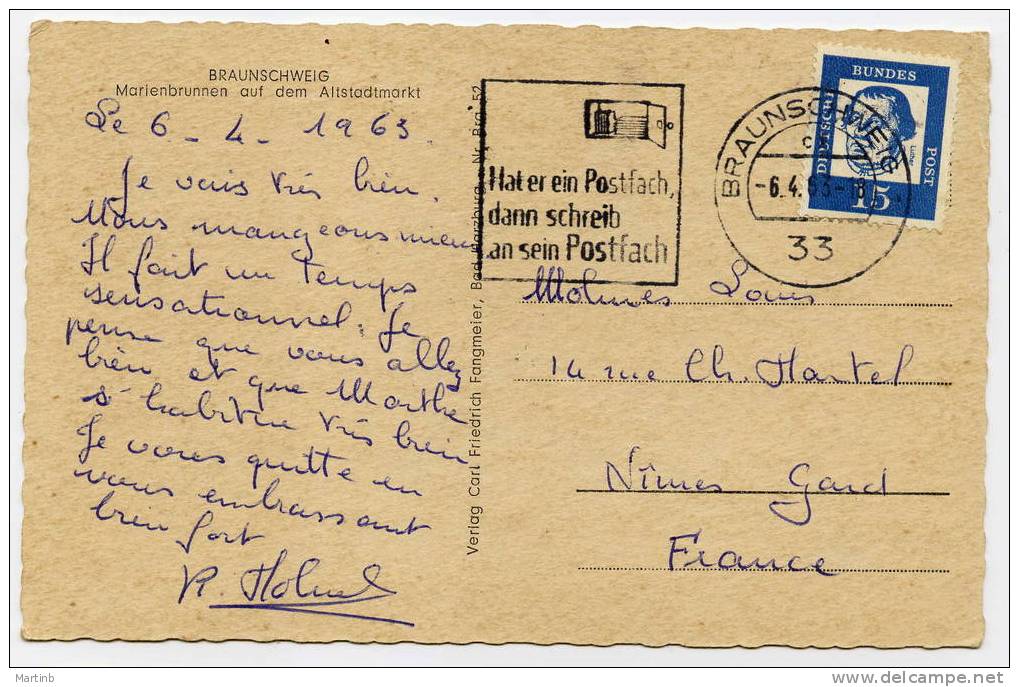 BRAUNSCHWEIG
Marienbrunnen auf dem Altstadtmarkt
Le 6 - 4 - 1963
Je vais très bien.
Nous mangeons mieux
Il fait un temps
sensationnel. Je
pense que vous allez
bien et que Marthe
s'habitue très bien
Je vous quitte en
vous embrassant
bien fort
Verlag Carl Friedrich Fangmeier, Bad Harzburg Nr. Brg 52
Hat er ein Postfach,
dann schreib
an sein Postfach
BRAUNSCHWEIG
-6.4.63-18
33
DEUTSCHE
BUNDES
POST
Luther
15
Louis
14 rue Ch. Martel
Nîmes Gard
France
Martinb
www.delcampe.net